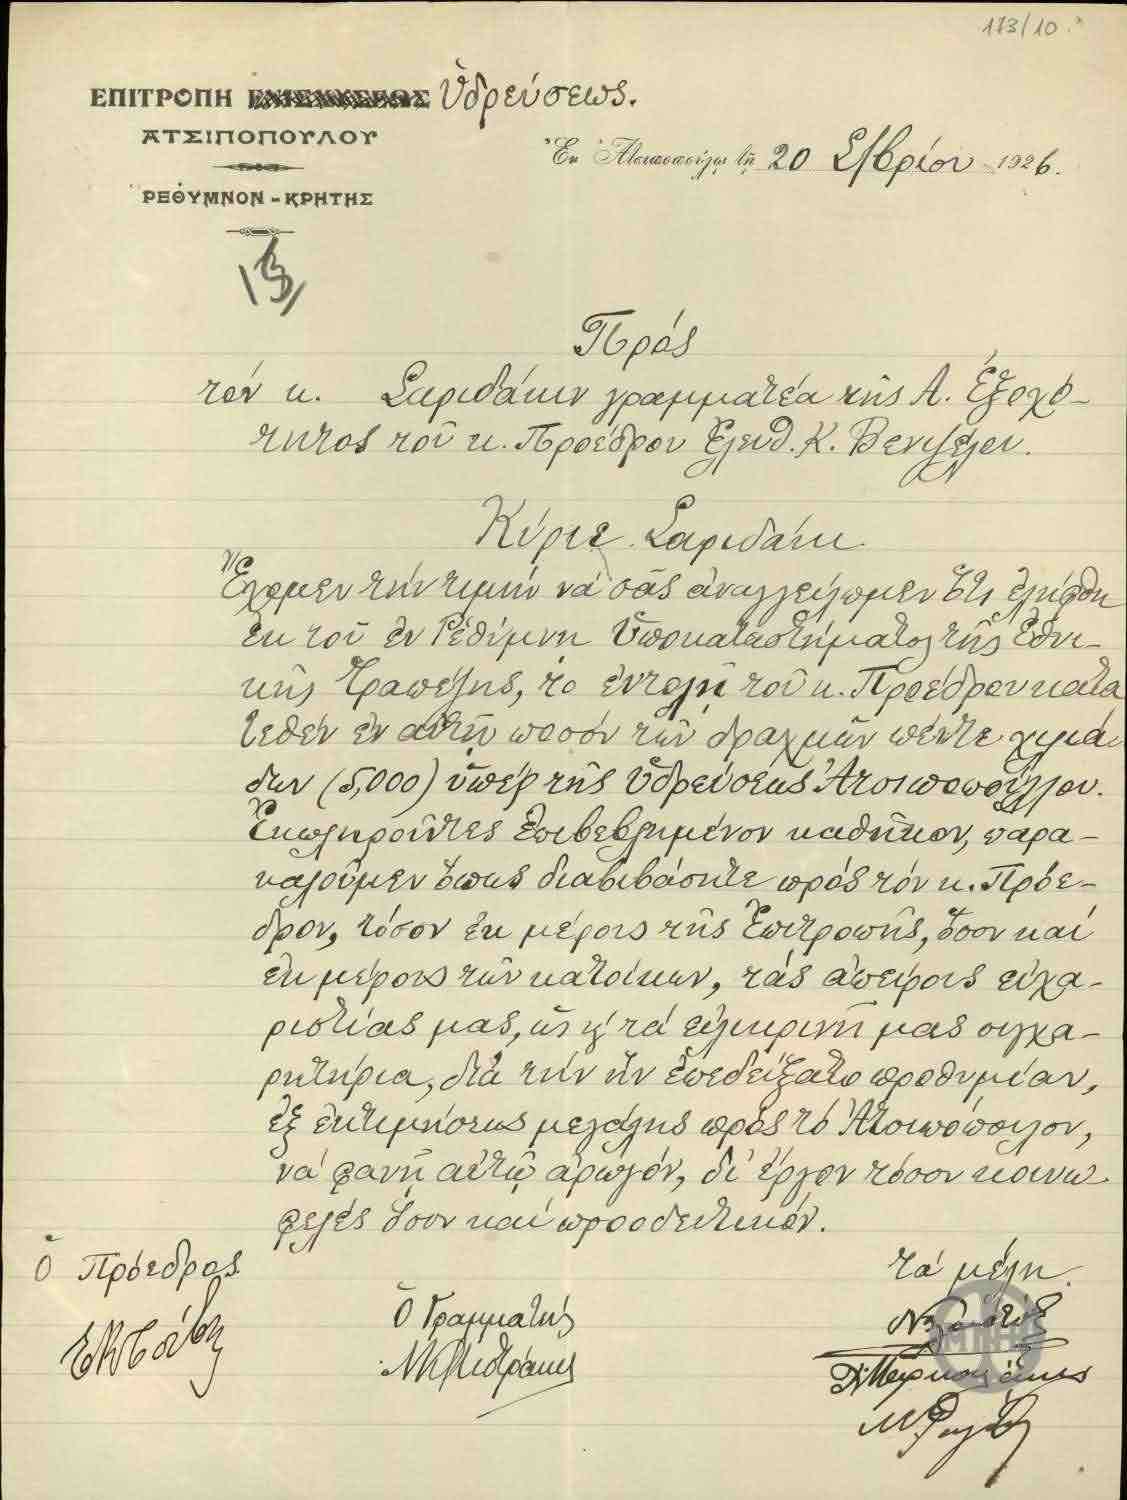 173/10
ΕΠΙΤΡΟΠΗ Ὑδρεύσεως.
ΑΤΣΙΠΟΠΟΥΛΟΥ
ΡΕΘΥΜΝΟΝ - ΚΡΗΤΗΣ
Ἐν Ἀτσιποπούλῳ τῇ 20 Σ/βρίου 1926.
Πρός
τόν κ. Σαριδάκην γραμματέα τῆς Α. Ἐξοχό-
τητος τοῦ κ. Προέδρου Ἐλευθ. Κ. Βενιζέλου.
Κύριε Σαριδάκη
Ἔχομεν τήν τιμήν νά σᾶς ἀναγγείλωμεν ὅτι ἐλήφθη
ἐκ τοῦ ἐν Ρεθύμνη Ὑποκαταστήματος τῆς Ἐθνι-
κῆς Τραπέζης, τό ἐντολῇ τοῦ κ. Προέδρου κατα
τεθέν ἐν αὐτῇ ποσόν τῶν δραχμῶν πέντε χιλιά-
δων (5,000) ὑπέρ τῆς Ὑδρεύσεως Ἀτσιποπούλλου.
Ἐκπληροῦντες ἐπιβεβλημένον καθῆκον, παρα-
καλοῦμεν ὅπως διαβιβάσητε πρός τόν κ. Πρόε-
δρον, τόσον ἐκ μέρους τῆς Ἐπιτροπῆς, ὅσον καί
ἐκ μέρους τῶν κατοίκων, τάς ἀπείρους εὐχα-
ριστίας μας, ὡς κ' τά εἰλικρινῆ μας συγχα-
ρητήρια, διά τήν ἥν ἐπεδείξατο προθυμίαν,
ἐξ ἐκτιμήσεως μεγάλης πρός τό Ἀτσιπόπουλον,
νά φανῇ αὐτῷ ἀρωγόν, δι' ἔργον τόσον κοινω
φελές ὅσον καί προοδευτικόν.
Ὁ Πρόεδρος
Ὁ Γραμματεύς
τά μέλη